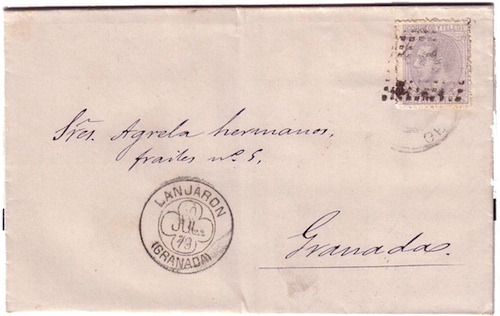 Sres. Agrela hermanos,
frailes nº 5,
LANJARON
JUL.
79
(GRANADA)
Granada.